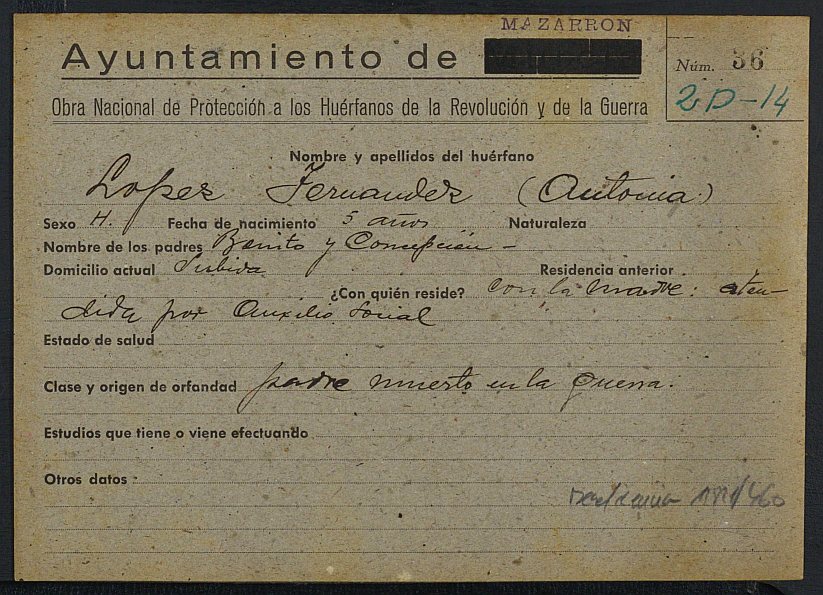 MAZARRON
Ayuntamiento de
Núm. 36
2D-14
Obra Nacional de Protección a los Huérfanos de la Revolución y de la Guerra
Nombre y apellidos del huérfano
Lopez Fernandez (Antonia)
Sexo H. Fecha de nacimiento 5 años Naturaleza
Nombre de los padres Benito y Concepción -
Domicilio actual Susbida Residencia anterior
¿Con quién reside? con la madre: aten-
dida por Auxilio Social
Estado de salud
Clase y origen de orfandad padre muerto en la guerra.
Estudios que tiene o viene efectuando
Otros datos